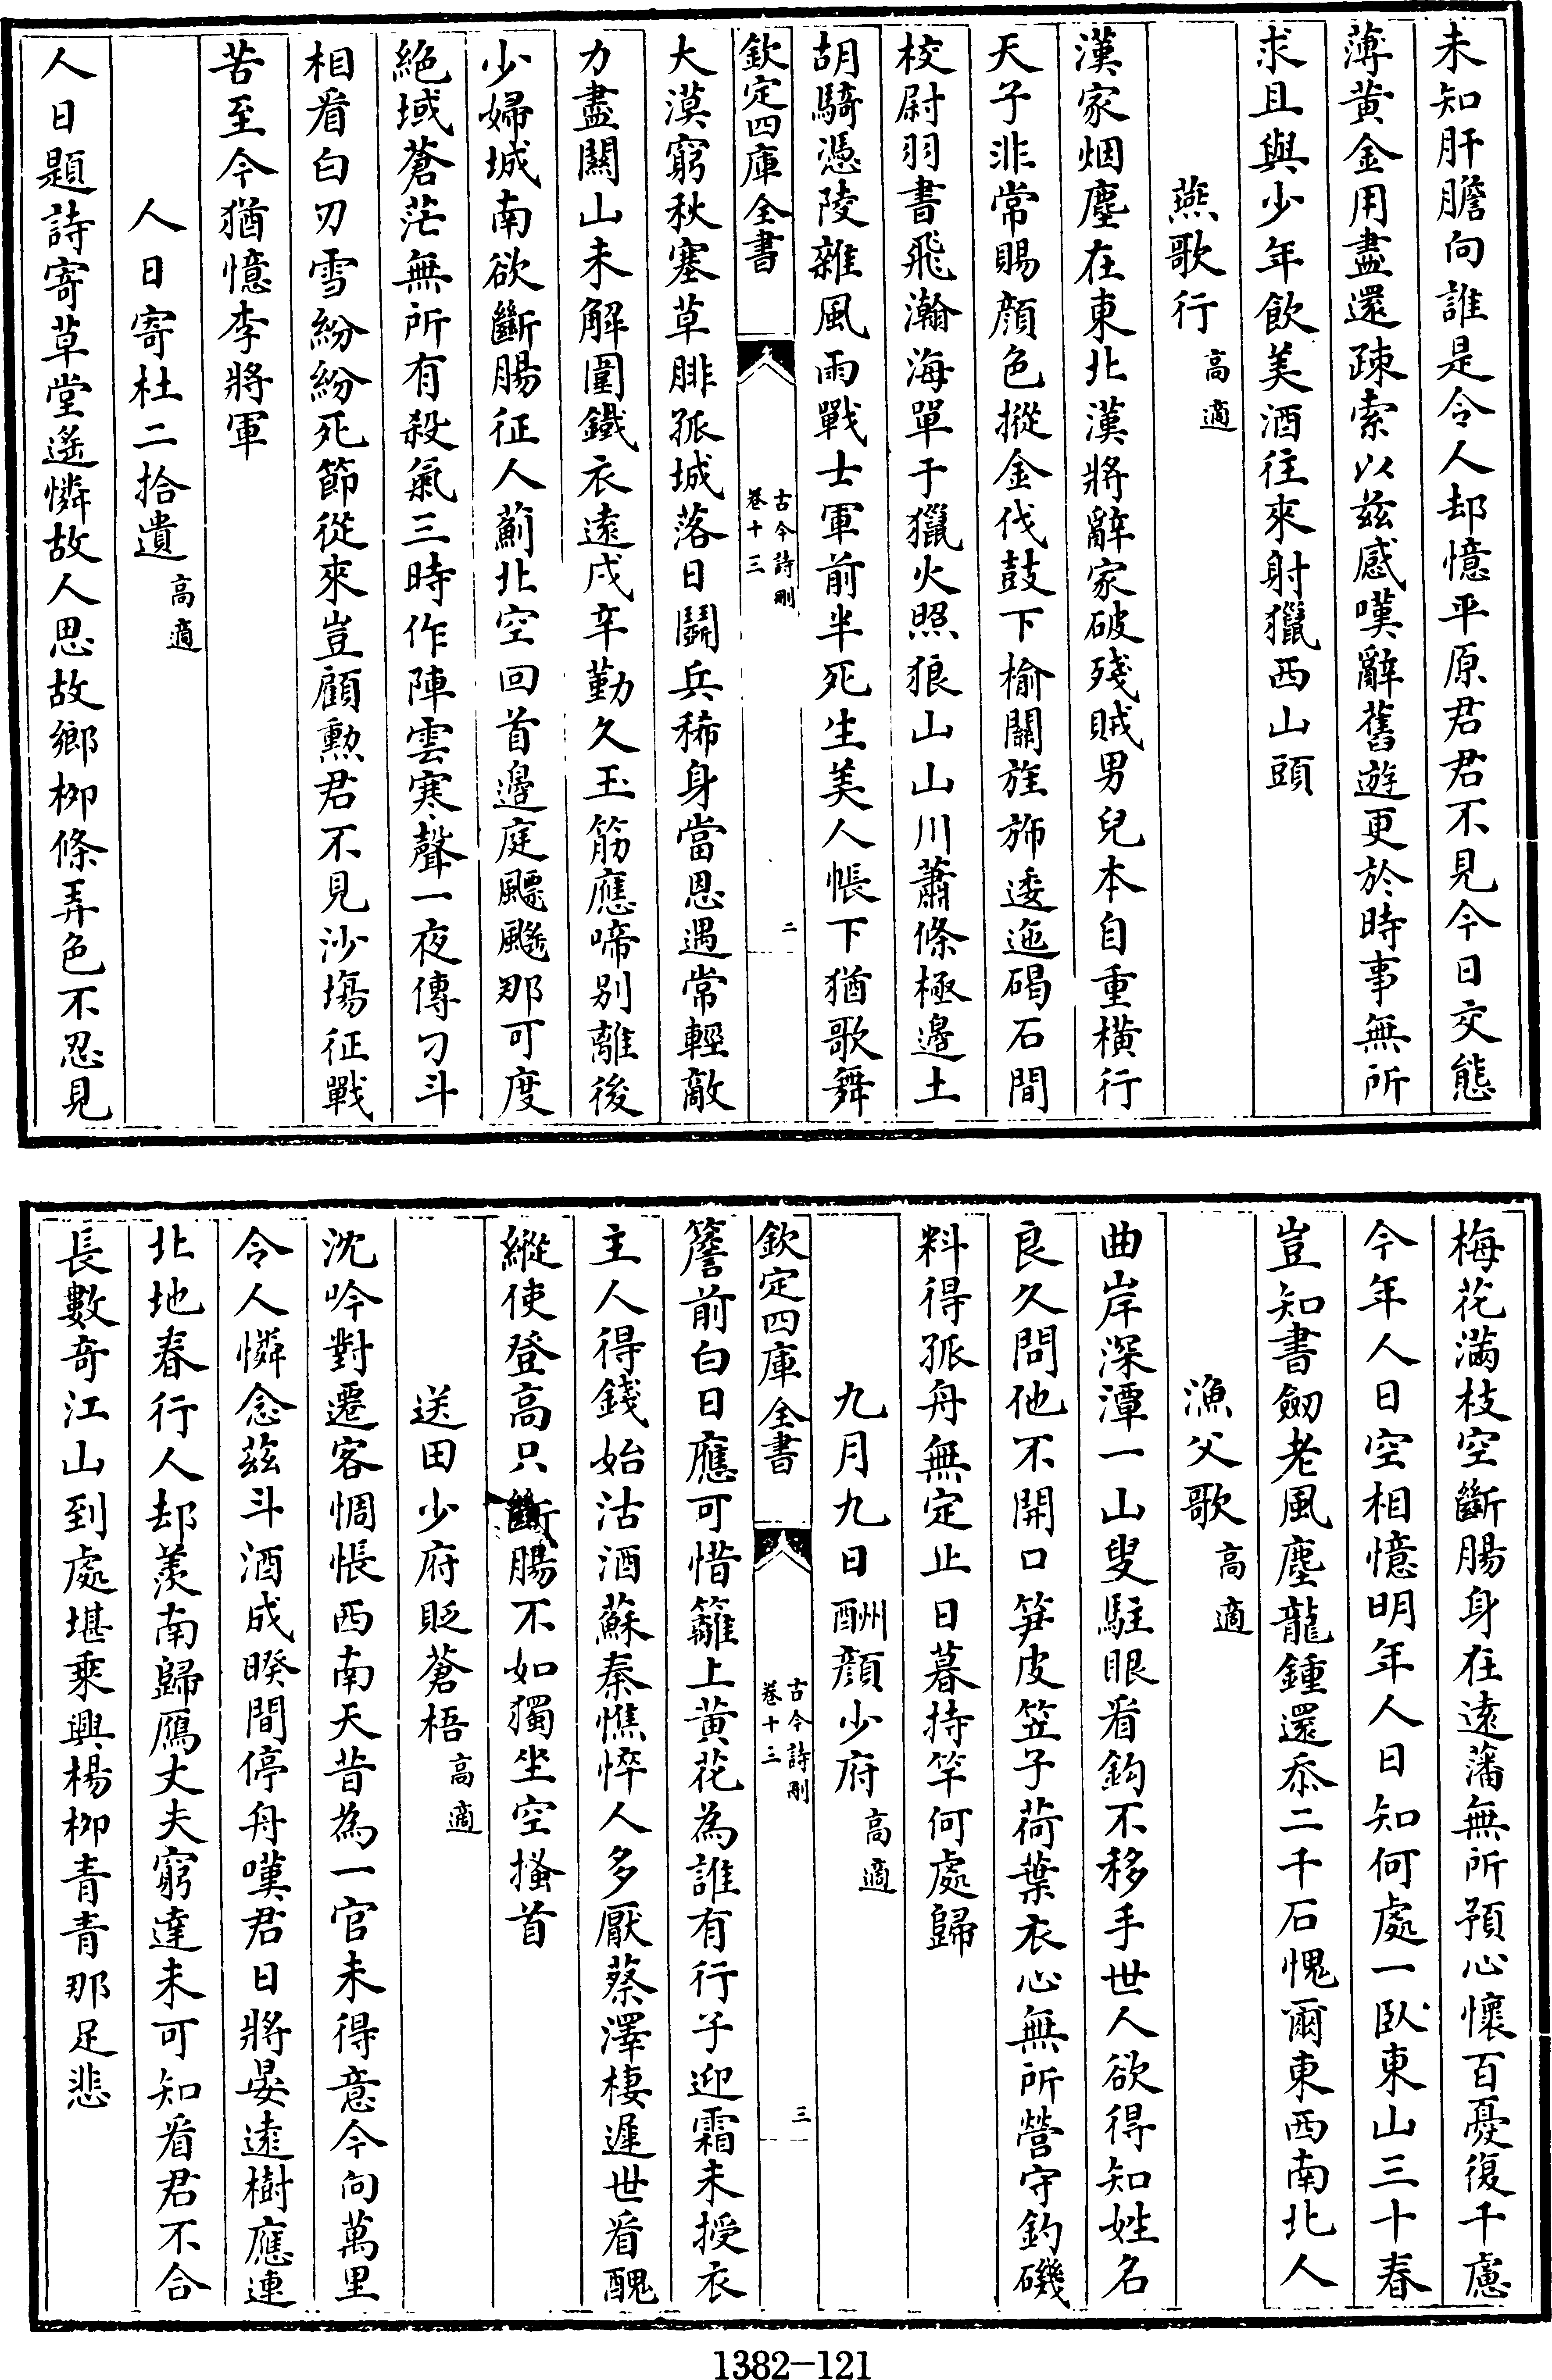 未知肝膽向誰是令人却憶平原君君不見今日交態
薄黄金用盡還疎索以兹感嘆辭舊遊更於時事無所
求且與少年飲美酒往來射獵西山頭
燕歌行 高適
漢家烟塵在東北漢將辭家破殘賊男兒本自重横行
天子非常賜顔色摐金伐鼓下榆關旌斾逶迤碣石間
校尉羽書飛瀚海單于獵火照狼山山川蕭條極邊土
胡騎憑陵雜風雨戰士軍前半死生美人帳下猶歌舞
欽定四庫全書 古今詩刪 卷十三 二
大漠窮秋塞草腓孤城落日鬬兵稀身當恩遇常輕敵
力盡關山未解圍鐵衣遠戍辛勤久玉筯應啼别離後
少婦城南欲斷腸征人薊北空回首邉庭飃颻那可度
絶域蒼茫無所有殺氣三時作陣雲寒聲一夜傳刁斗
相看白刃雪紛紛死節從來豈顧勲君不見沙場征戰
苦至今猶憶李將軍
人日寄杜二拾遺 高適
人日題詩寄草堂遙憐故人思故鄉柳條弄色不忍見
梅花滿枝空斷腸身在遠藩無所預心懷百憂復千慮
今年人日空相憶明年人日知何處一臥東山三十春
豈知書劒老風塵龍鍾還忝二千石愧爾東西南北人
漁父歌 高適
曲岸深潭一山叟駐眼看鈎不移手世人欲得知姓名
良久問他不開口笋皮笠子荷葉衣心無所營守釣磯
料得孤舟無定止日暮持竿何處歸
九月九日酬顔少府 高適
欽定四庫全書 古今詩刪 卷十三 三
簷前白日應可惜籬上黄花為誰有行子迎霜未授衣
主人得錢始沽酒蘇秦憔悴人多厭蔡澤棲遲世看醜
縱使登高只斷腸不如獨坐空搔首
送田少府貶蒼梧 高適
沈吟對遷客惆悵西南天昔為一官未得意今向萬里
令人憐念兹斗酒成暌間停舟嘆君日將晏遠樹應連
北地春行人却羡南歸鴈丈夫窮達未可知看君不合
長數奇江山到處堪乘興楊柳青青那足悲
1382-121